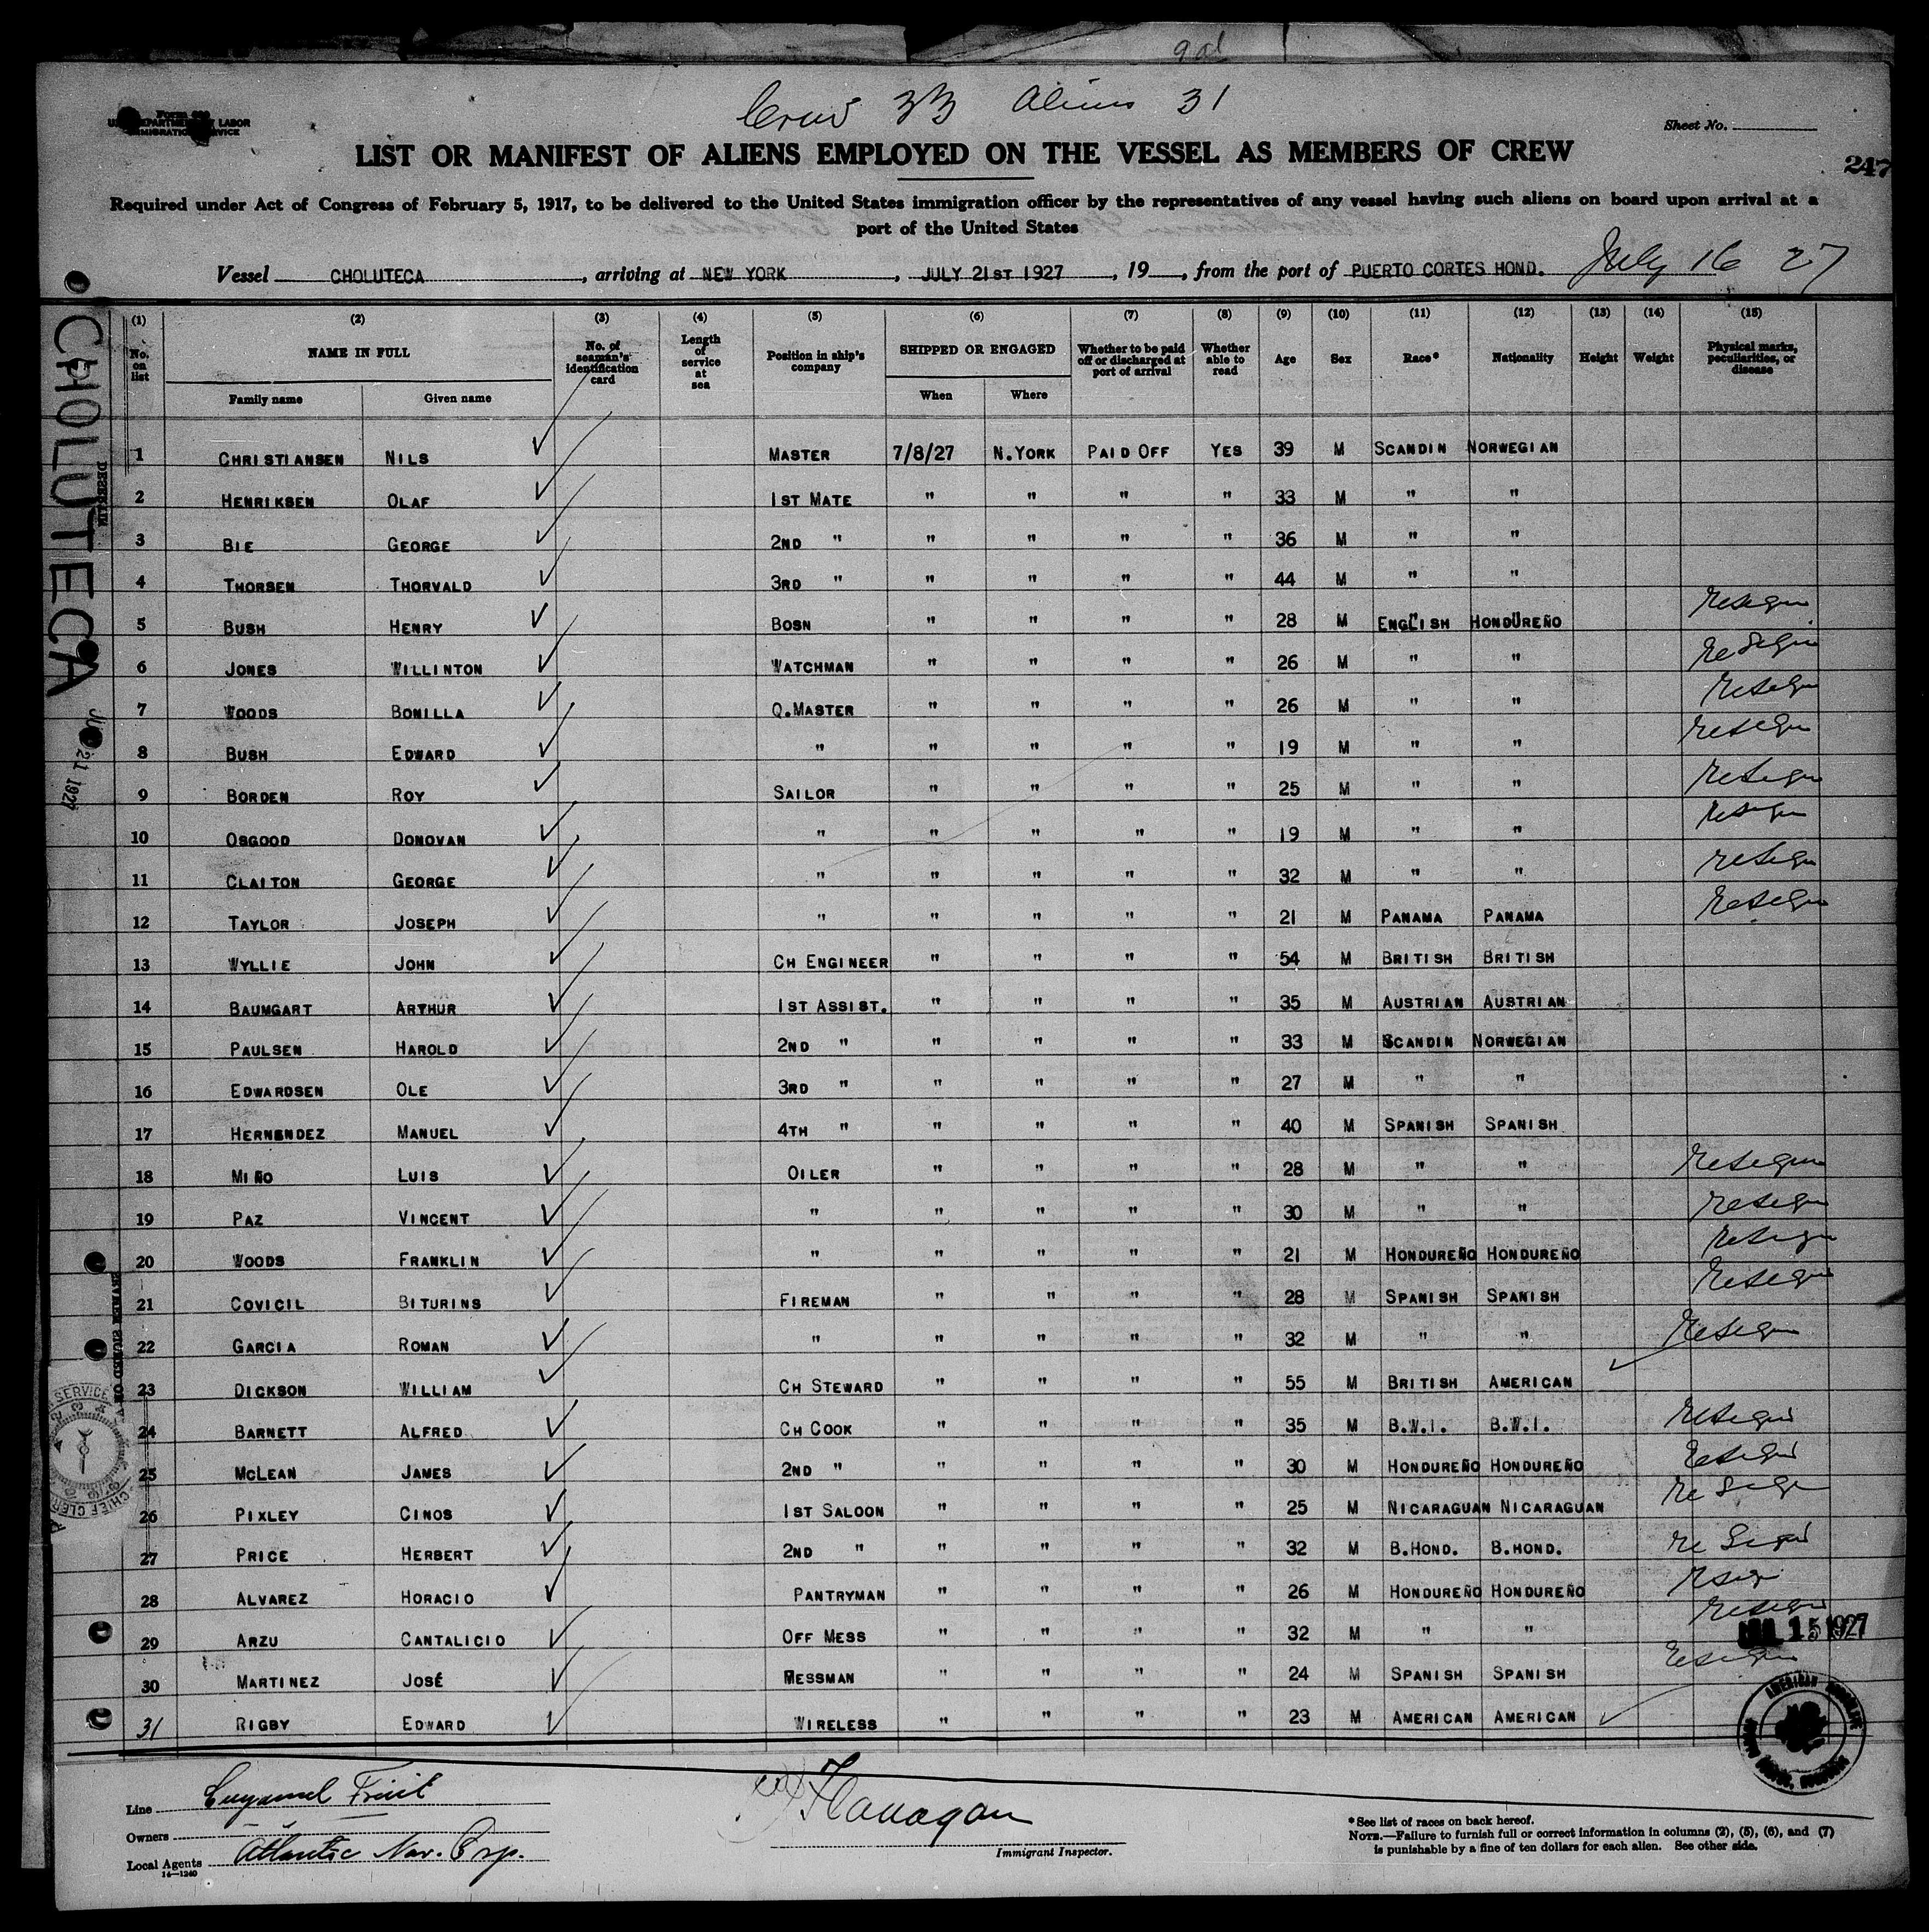 9d
Crew 33 Aliens 31
U.S. DEPARTMENT OF LABOR
IMMIGRATION SERVICE
Sheet No.
LIST OR MANIFEST OF ALIENS EMPLOYED ON THE VESSEL AS MEMBERS OF CREW
247
Required under Act of Congress of February 5, 1917, to be delivered to the United States immigration officer by the representatives of any vessel having such aliens on board upon arrival at a
port of the United States
Vessel CHOLUTECA, arriving at NEW YORK, JULY 21ST 1927, 19, from the port of PUERTO CORTES HOND. July 16 27
CHOLUTECA
21 1927
(1) (2) (3) (4) (5) (6) (7) (8) (9) (10) (11) (12) (13) (14) (15)
No. on list NAME IN FULL No. of seaman's identification card Length of service at sea Position in ship's company SHIPPED OR ENGAGED Whether to be paid off or discharged at port of arrival Whether able to read Age Sex Race* Nationality Height Weight Physical marks, peculiarities, or disease
Family name Given name When Where
1 CHRISTIANSEN NILS MASTER 7/8/27 N.YORK PAID OFF YES 39 M SCANDIN NORWEGIAN
2 HENRIKSEN OLAF 1ST MATE " " " " 33 M " "
3 BIE GEORGE 2ND " " " " " 36 M " "
4 THORSEN THORVALD 3RD " " " " " 44 M " "
5 BUSH HENRY BOSN " " " " 28 M ENGLISH HONDUREÑO
6 JONES WILLINTON WATCHMAN " " " " 26 M " "
7 WOODS BONILLA Q.MASTER " " " " 26 M " "
8 BUSH EDWARD " " " " " 19 M " "
9 BORDEN ROY SAILOR " " " " 25 M " "
10 OSGOOD DONOVAN " " " " " 19 M " "
11 CLAITON GEORGE " " " " " 32 M " "
12 TAYLOR JOSEPH " " " " " 21 M PANAMA PANAMA
13 WYLLIE JOHN CH ENGINEER " " " " 54 M BRITISH BRITISH
14 BAUMGART ARTHUR 1ST ASSIST. " " " " 35 M AUSTRIAN AUSTRIAN
15 PAULSEN HAROLD 2ND " " " " " 33 M SCANDIN NORWEGIAN
16 EDWARDSEN OLE 3RD " " " " " 27 M " "
17 HERNENDEZ MANUEL 4TH " " " " " 40 M SPANISH SPANISH
18 MIÑO LUIS OILER " " " " 28 M " "
19 PAZ VINCENT " " " " " 30 M " "
20 WOODS FRANKLIN " " " " " 21 M HONDUREÑO HONDUREÑO
21 COVICIL BITURINS FIREMAN " " " " 28 M SPANISH SPANISH
22 GARCIA ROMAN " " " " " 32 M " "
23 DICKSON WILLIAM CH STEWARD " " " " 55 M BRITISH AMERICAN
24 BARNETT ALFRED CH COOK " " " " 35 M B.W.I. B.W.I.
25 MCLEAN JAMES 2ND " " " " " 30 M HONDUREÑO HONDUREÑO
26 PIXLEY CINOS 1ST SALOON " " " " 25 M NICARAGUAN NICARAGUAN
27 PRICE HERBERT 2ND " " " " " 32 M B.HOND. B.HOND.
28 ALVAREZ HORACIO PANTRYMAN " " " " 26 M HONDUREÑO HONDUREÑO
29 ARZU CANTALICIO OFF MESS " " " " 32 M " "
30 MARTINEZ JOSÉ MESSMAN " " " " 24 M SPANISH SPANISH
31 RIGBY EDWARD WIRELESS " " " " 23 M AMERICAN AMERICAN
15 1927
Line Cuyamel Fruit
Owners " "
Local Agents Atlantic Nav. Corp.
14—1240
Flanagan
Immigrant Inspector.
* See list of races on back hereof.
NOTE.—Failure to furnish full or correct information in columns (2), (5), (6), and (7)
is punishable by a fine of ten dollars for each alien. See other side.